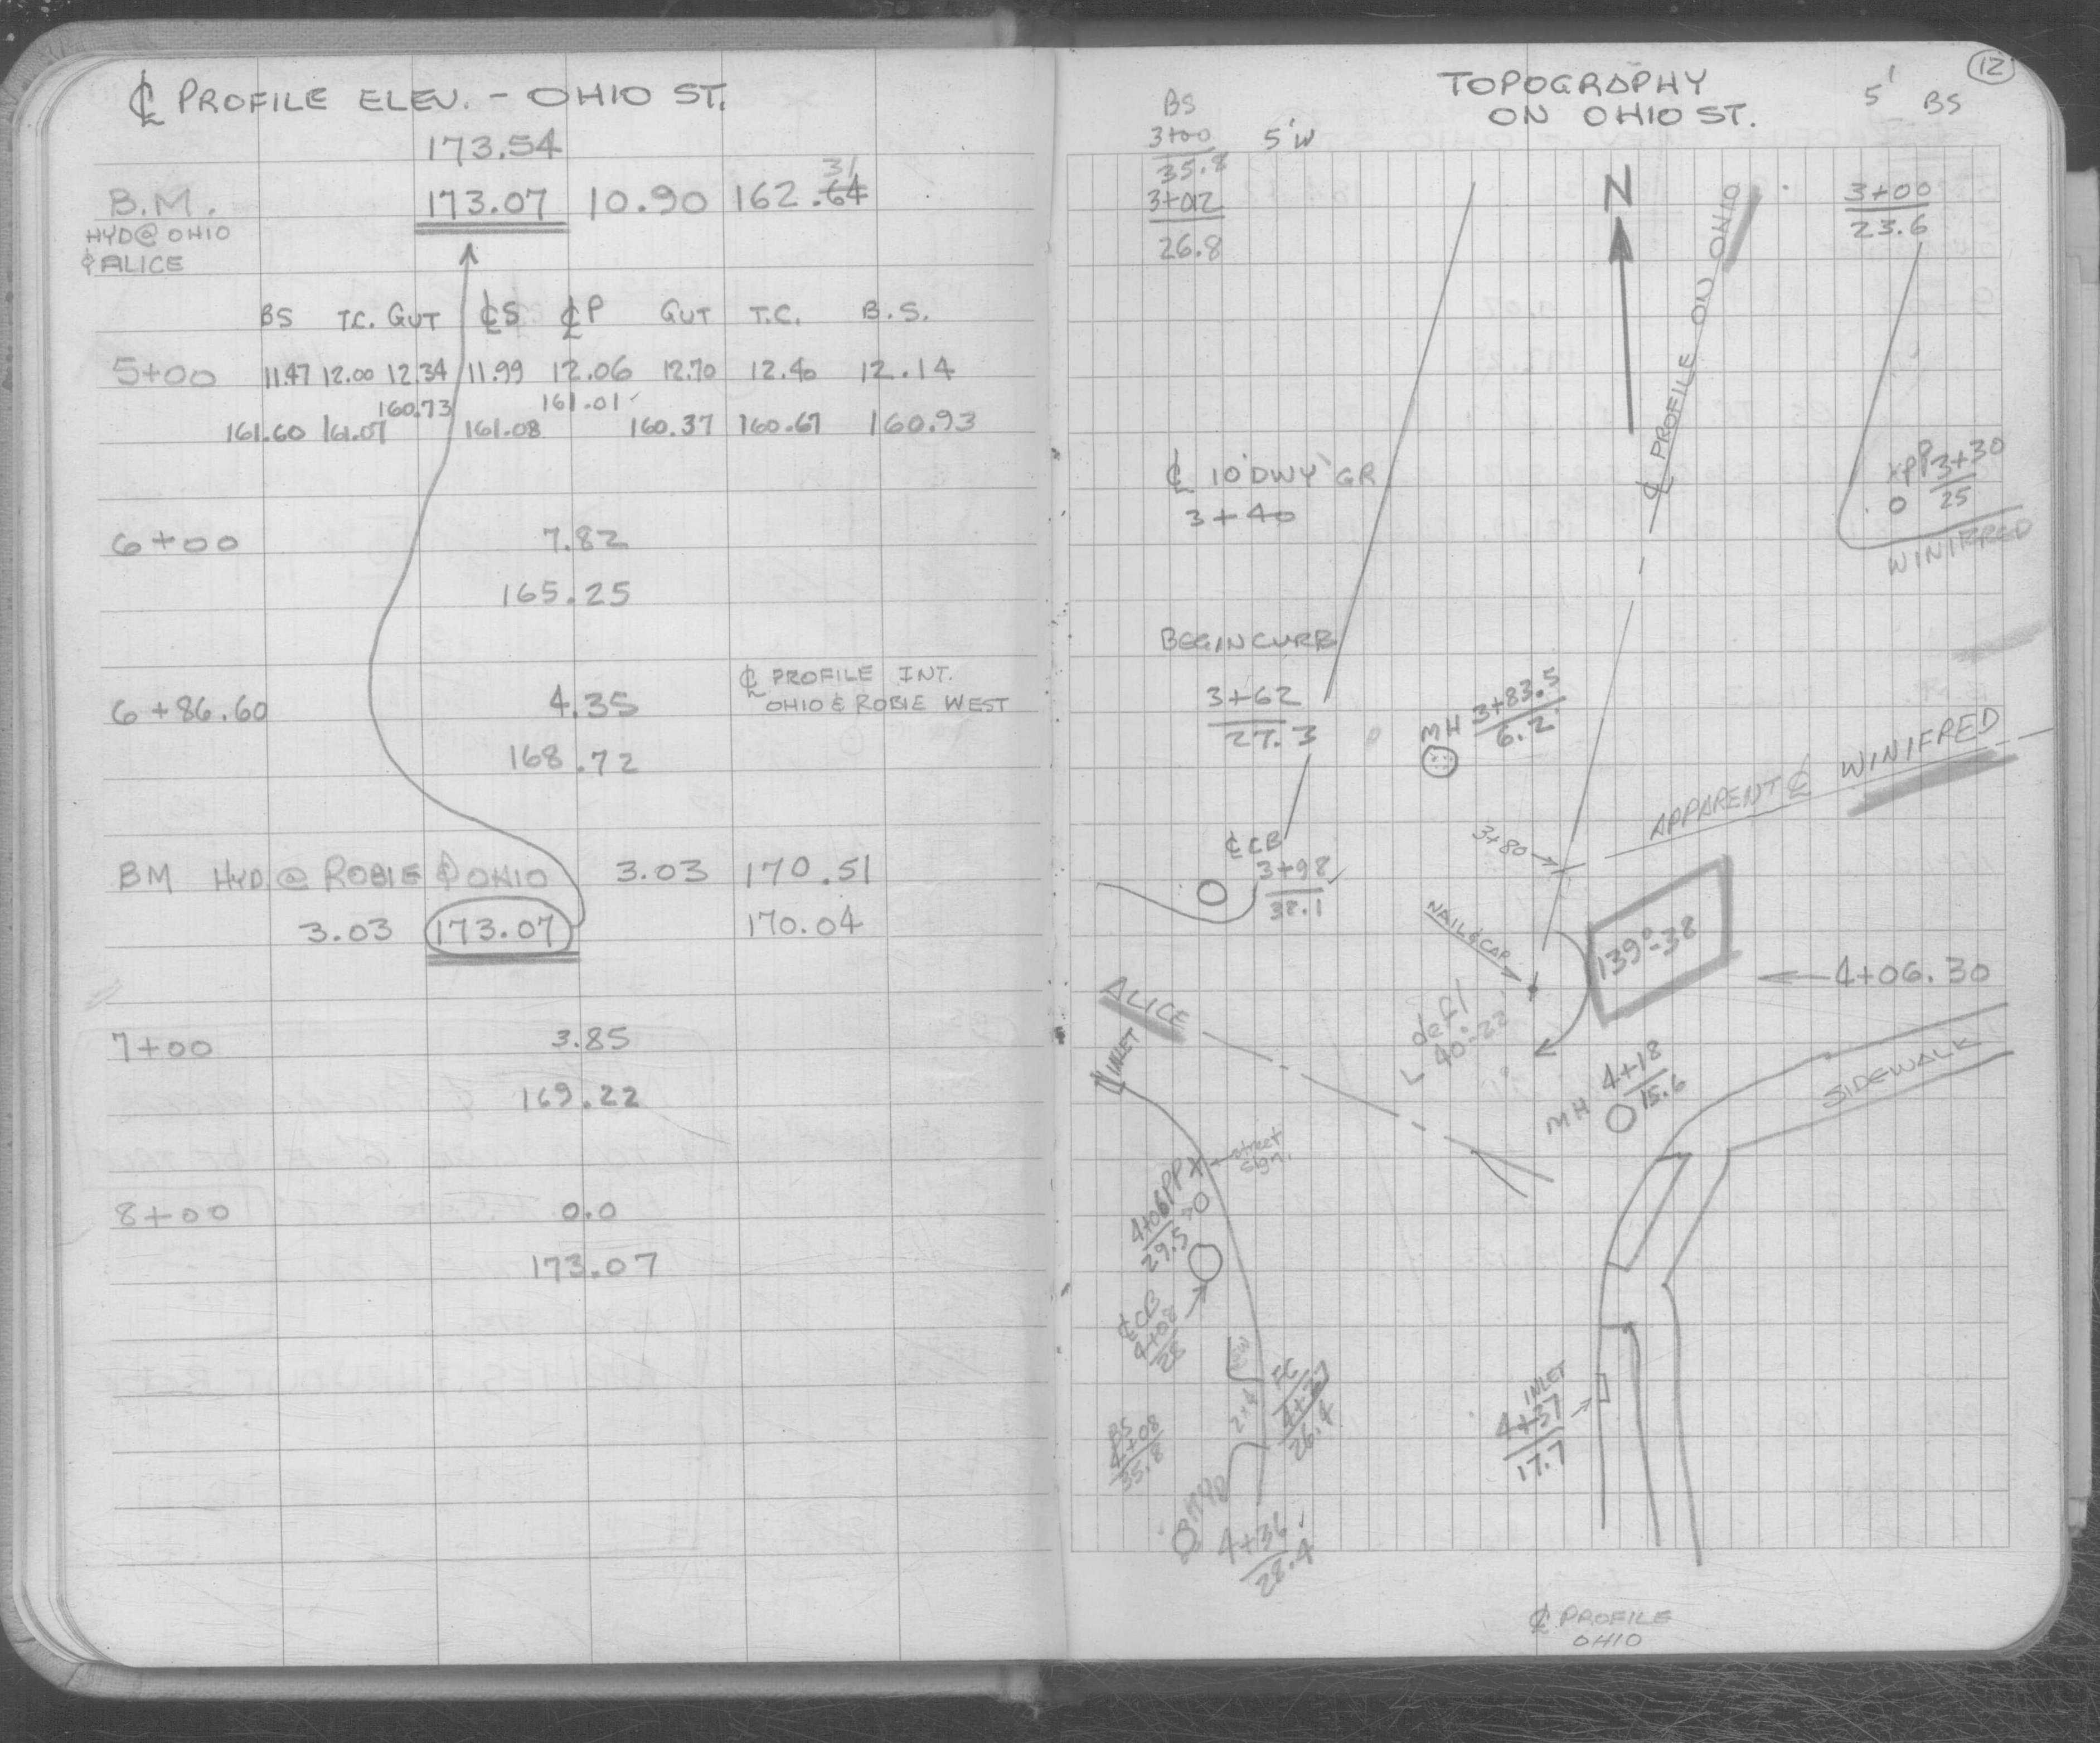 ℄ PROFILE ELEV. - OHIO ST.
173.54
B.M. 173.07 10.90 162.64 31
HYD@ OHIO
& ALICE
BS T.C. GUT ℄S ℄P GUT T.C. B.S.
5+00 11.47 12.00 12.34 11.99 12.06 12.70 12.40 12.14
160.73 161.01
161.60 161.07 161.08 160.37 160.67 160.93
6+00 7.82
165.25
℄ PROFILE INT.
OHIO & ROBIE WEST
6+86.60 4.35
168.72
BM HYD.@ ROBIE & OHIO 3.03 170.51
3.03 173.07 170.04
7+00 3.85
169.22
8+00 0.0
173.07
12
TOPOGRAPHY
ON OHIO ST.
BS
3+00
35.8
5'W
3+02
26.8
5' BS
3+00
23.6
N
℄ PROFILE ON OHIO
℄ 10' DWY GR
3+40
PP 3+30
25
WINIFRED
BEGIN CURB
3+62
27.3
MH 3+83.5
6.2
APPARENT ℄ WINIFRED
3+80
℄ CB
3+98
32.1
NAIL & CAP
139°-38
4+06.30
defl
L 40°-22'
ALICE
INLET
MH 4+18
15.6
SIDEWALK
street
sign
4+06 PP
29.5
℄ CB
4+08
28
BS
4+08
35.8
4+27
26.4
HYD
4+36
28.4
INLET
4+37
17.7
℄ PROFILE
OHIO